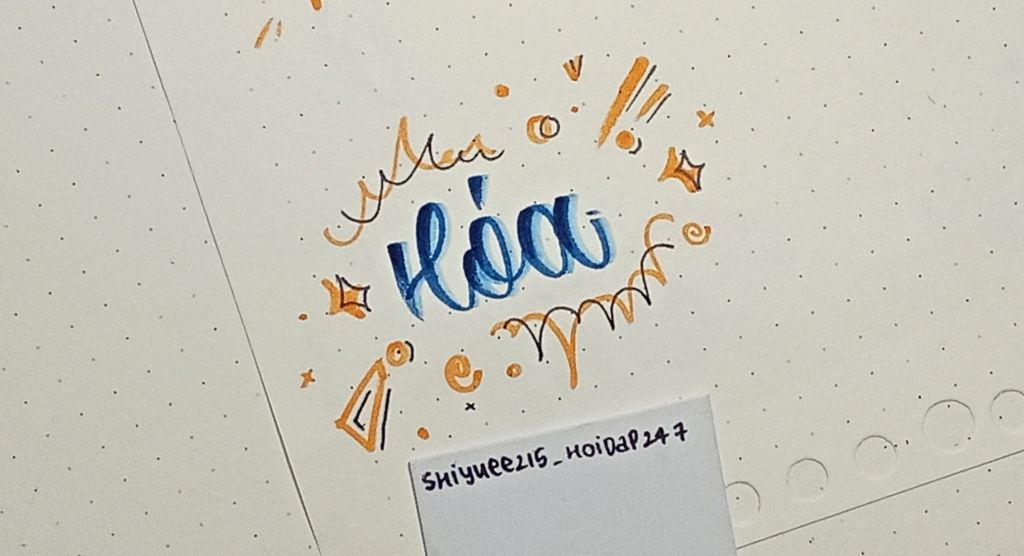 Hóa
SHiyuee215_HoiDaP247